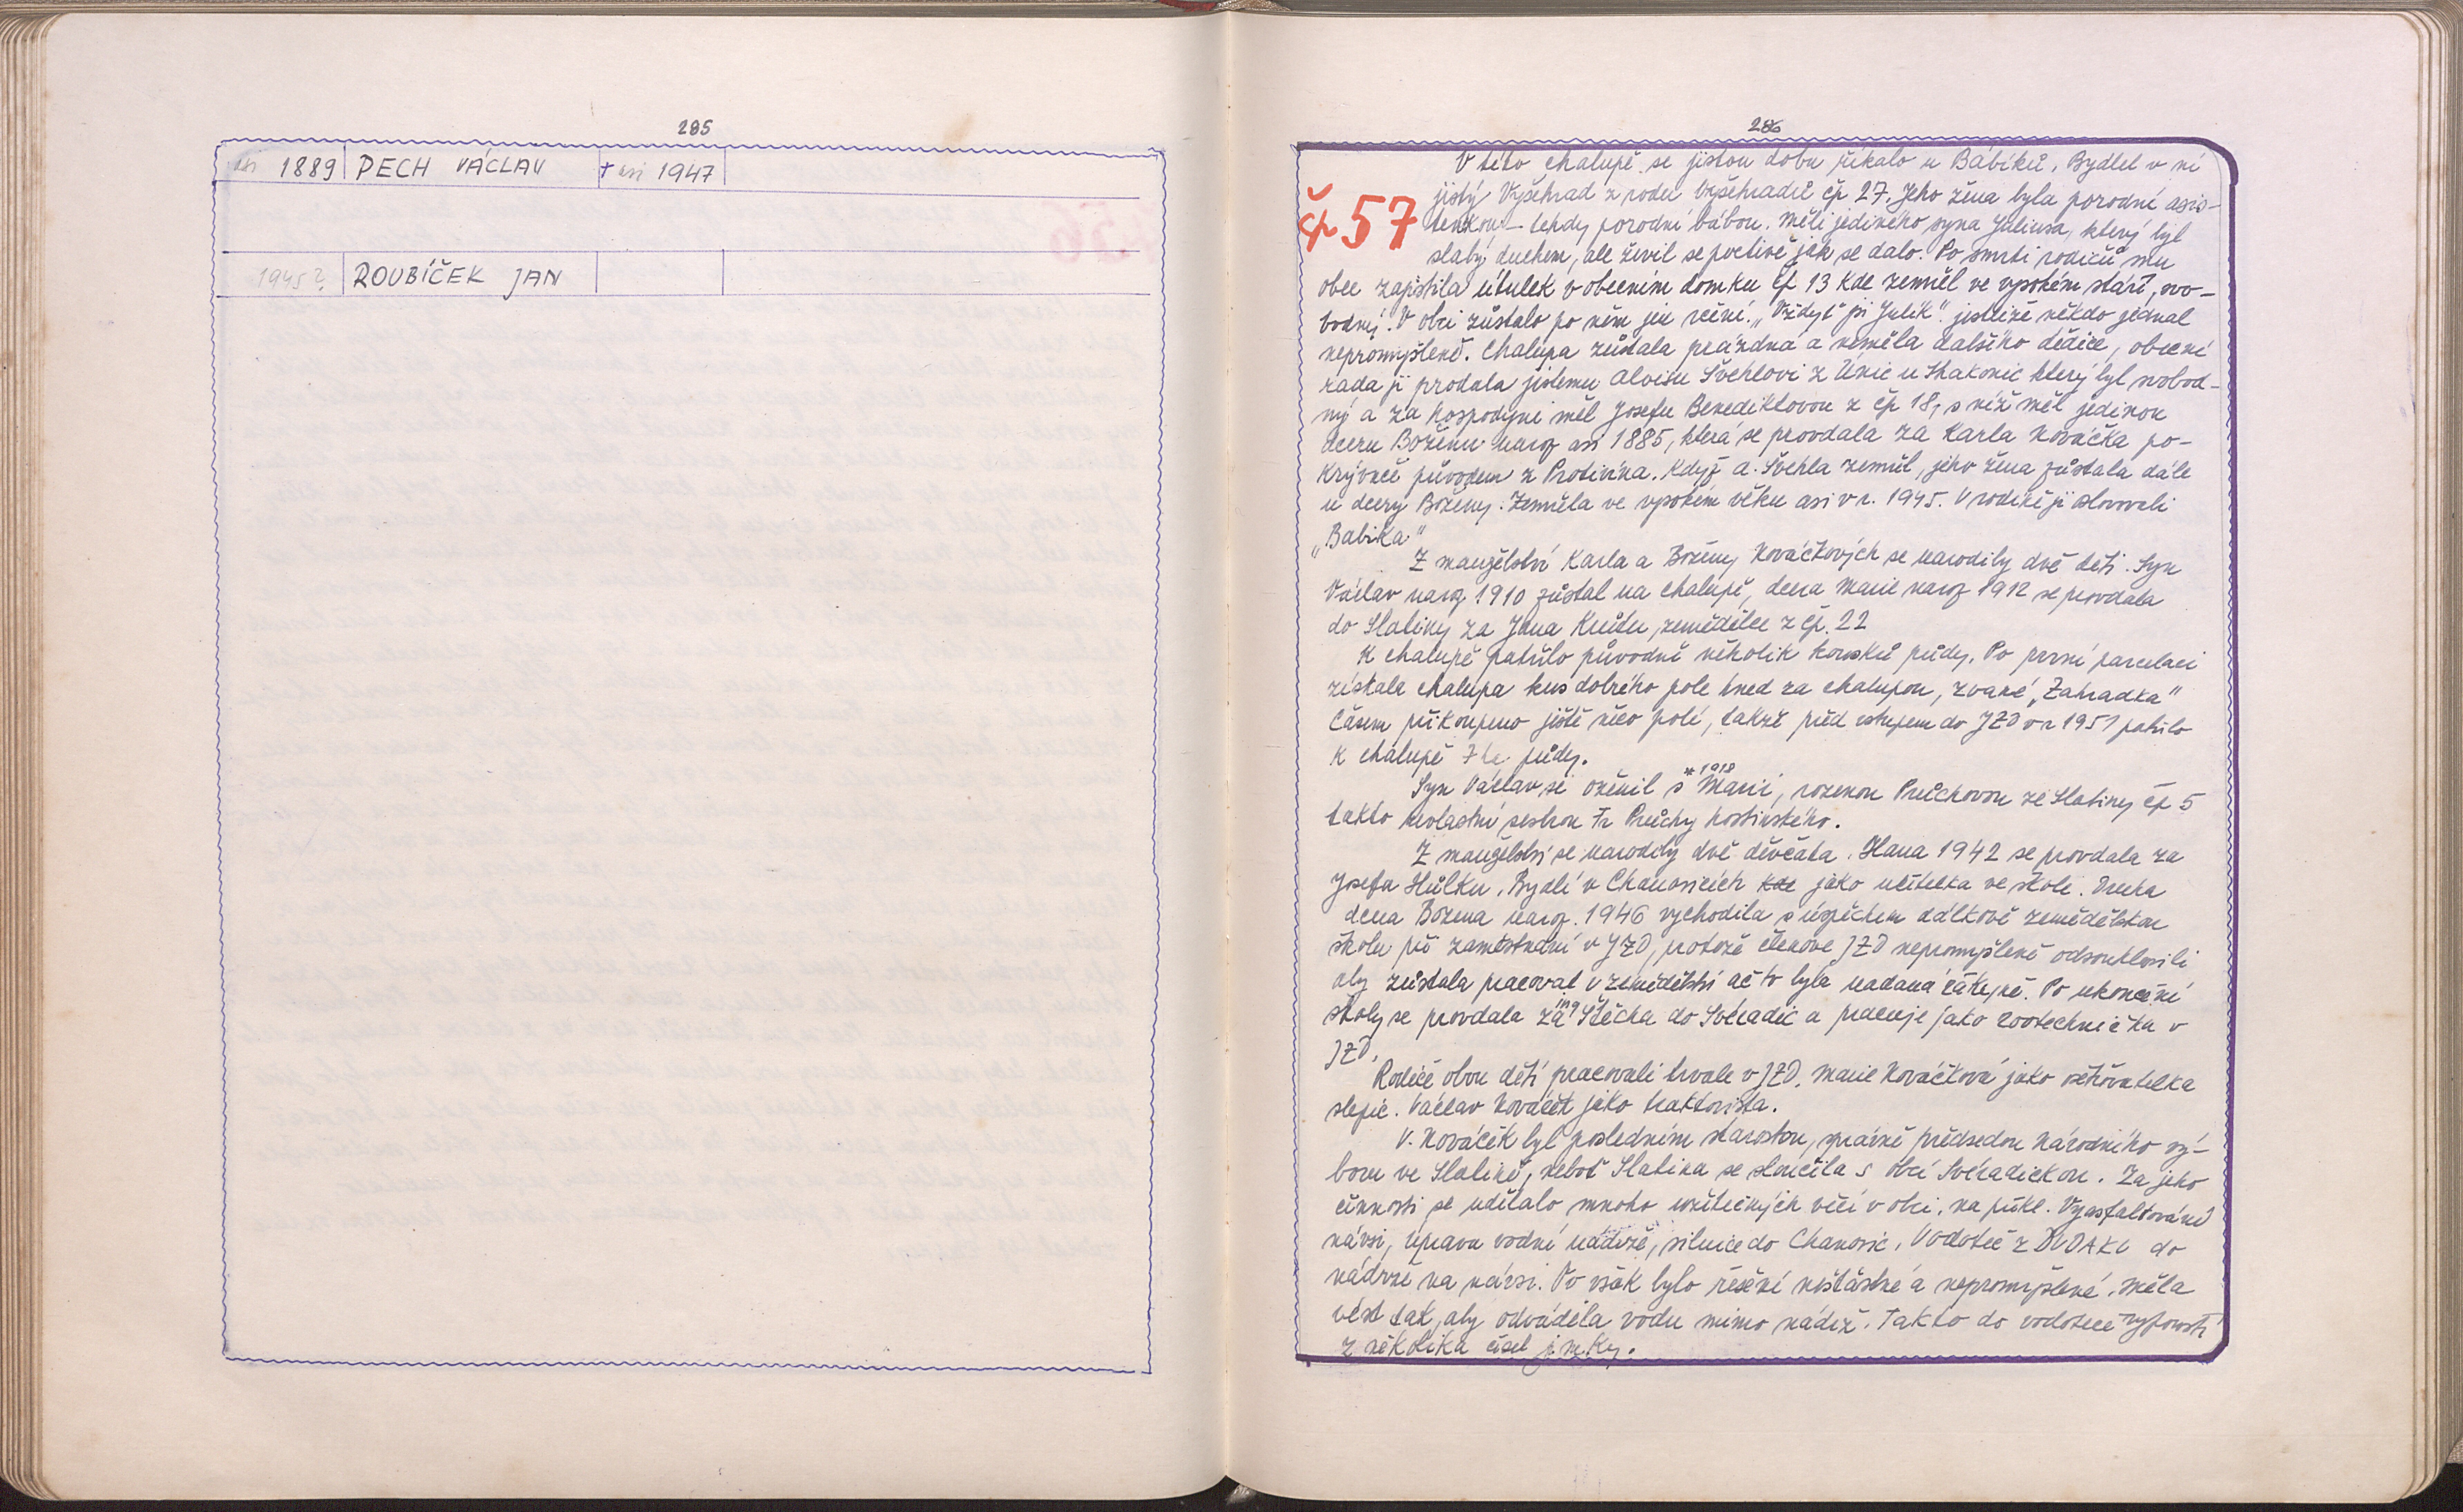 285
asi 1889 PECH VÁCLAV † asi 1947
1945? ROUBÍČEK JAN
286
čp 57
V této chalupě se jistou dobu říkalo u Bábíků. Bydlel v ní
jistý Vyšehrad z rodu Vyšehradů čp 27. Jeho žena byla porodní asis-
tenkou – tehdy porodní bábou. Měli jediného syna Juliusa, který byl
slabý duchem, ale živil se poctivě jak se dalo. Po smrti rodičů mu
obec zajistila útulek v obecním domku čp 13 kde zemřel ve vysokém stáří, svo-
bodný. V obci zůstalo po něm jen rčení. „Vždyť jsi Julík" jestliže někdo jednal
nepromyšleně. Chalupa zůstala prázdná a neměla dalšího dědice, obecní
rada ji prodala jistému Aloisu Švehlovi z Únic u Strakonic který byl svobod-
ný a za hospodyni měl Josefu Benediktovou z čp 18, s níž měl jedinou
dceru Boženu naroz asi 1885, která se provdala za Karla Kováčka po-
krývače původem z Protivína. Když A. Švehla zemřel, jeho žena zůstala dále
u dcery Boženy. Zemřela ve vysokém věku asi v r. 1945. V rodině ji oslovovali
„Babika"
Z manželství Karla a Boženy Kováčkových se narodily dvě děti. Syn
Václav naroz 1910 zůstal na chalupě, dcera Marie naroz 1912 se provdala
do Slatiny za Jana Krůtu, zemědělce z čp. 22
K chalupě patřilo původně několik kousků půdy. Po první parcelaci
získala chalupa kus dobrého pole hned za chalupou, zvané „Zahradka"
Časem přikoupeno ještě něco polí, takže před vstupem do JZD v r 1951 patřilo
k chalupě 7 ha půdy.
Syn Václav se oženil s *1918 Marií, rozenou Průchovou ze Slatiny čp 5
takto nevlastní sestrou Fr Průchy hostinského.
Z manželství se narodily dvě děvčata. Hana 1942 se provdala za
Josefa Hůlku. Bydlí v Chanovicích kde jako učitelka ve škole. Druhá
dcera Božena naroz. 1946 vychodila s úspěchem dálkově zemědělskou
školu při zaměstnání v JZD, protože členové JZD nepromyšleně odsouhlasili
aby zůstala pracovat v zemědělství ač to byla nadaná žákyně. Po ukončení
školy se provdala za ing Štěcha do Svéradic a pracuje jako zootechnička v
JZD.
Rodiče obou dětí pracovali trvale v JZD. Marie Kováčková jako ošetřovatelka
slepic. Václav Kováček jako traktorista.
V. Kováček byl posledním starostou, správně předsedou Národního vý-
boru ve Slatině, neboť Slatina se sloučila s obcí Svéradickou. Za jeho
činnosti se udělalo mnoho užitečných věcí v obci, na příkl. Vyasfaltování
návsi, úprava vodní nádrže, silnice do Chanovic, Vodoteč z do
nádrže na návsi. To však bylo řešení nešťastné a nepromyšlené. Měla
vést tak, aby odváděla vodu mimo nádrž. Takto do vodoteče
z několika čísel jímky.